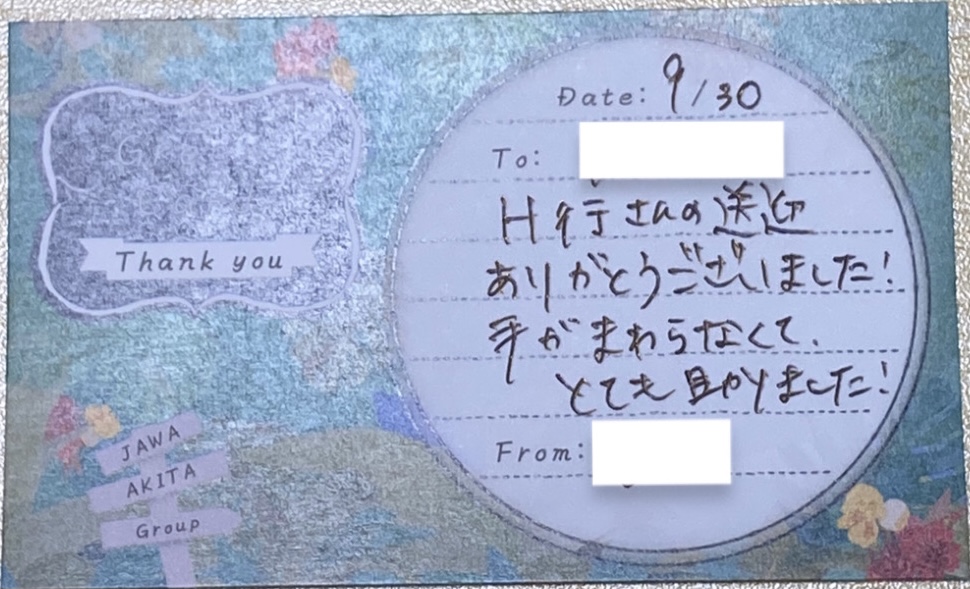 Thank you
JAWA
AKITA
Group
Date: 9/30
To:
H行さんの送迎
ありがとうございました!
手がまわらなくて、
とても助かりました!
From: